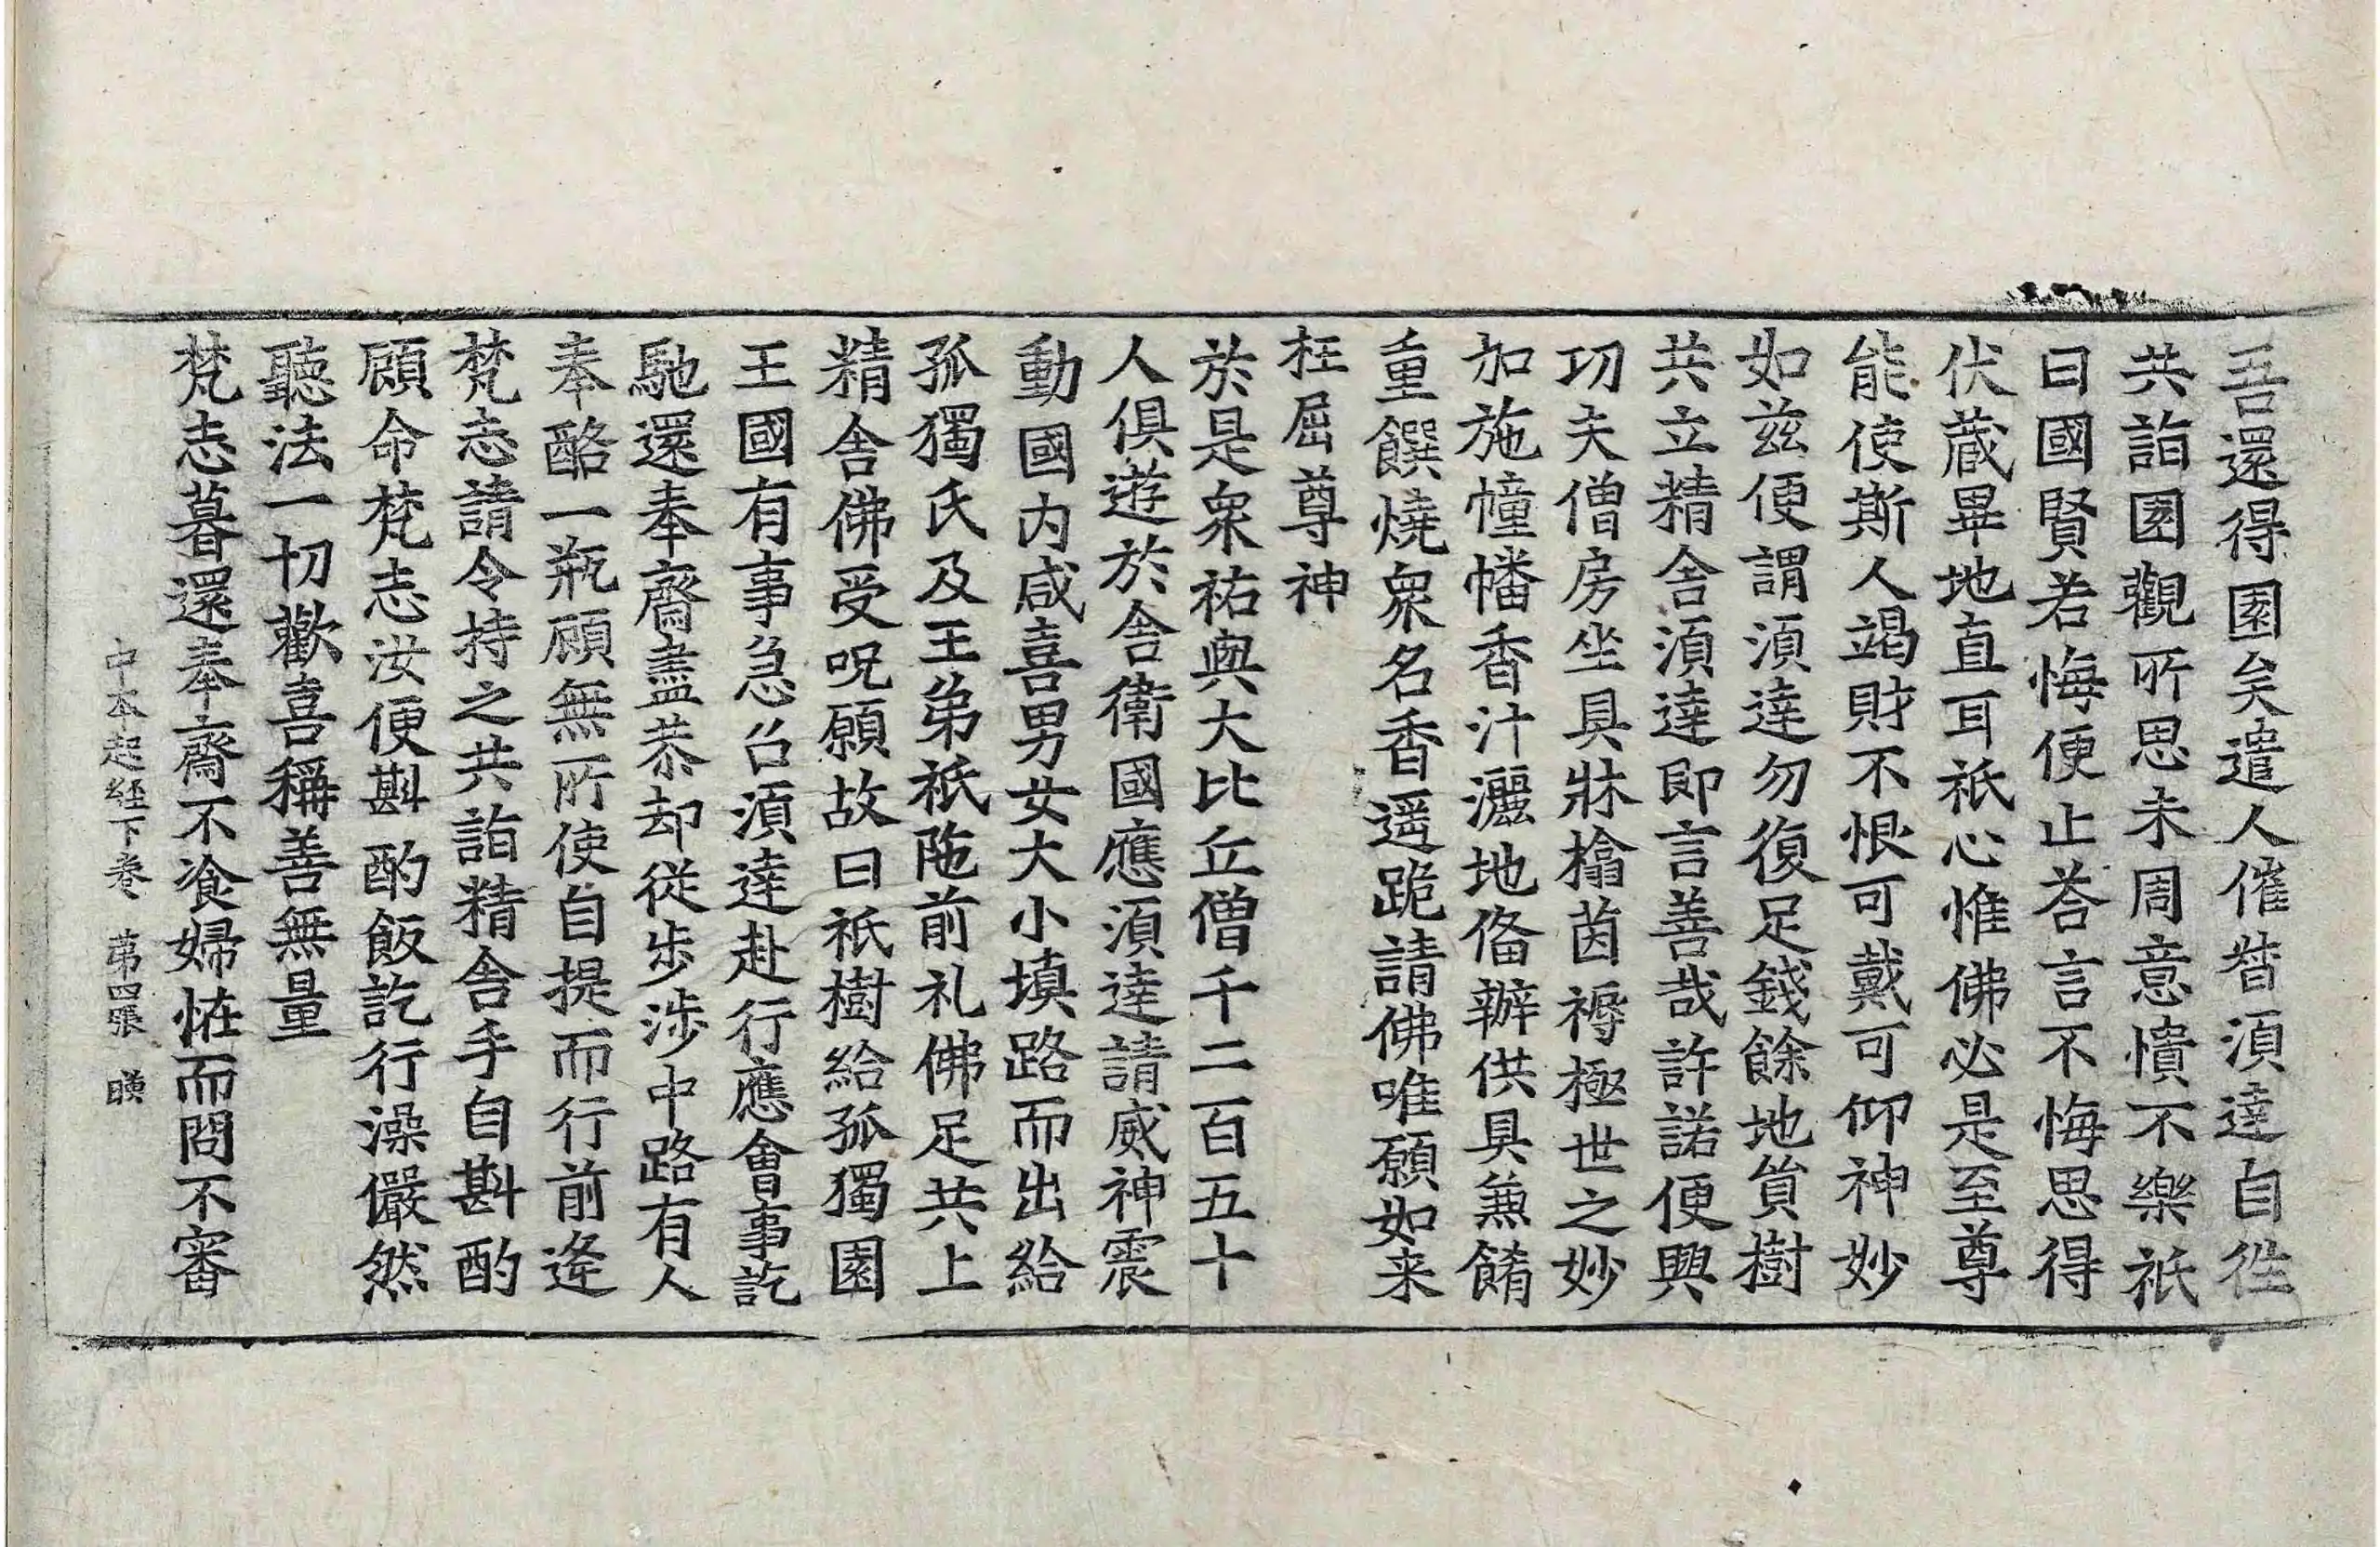 吾還得園矣遣人催督湏達自徃
共詣園觀所思未周意憒不樂祇
曰國賢若悔便止荅言不悔思得
伏蔵畢地直耳祇心惟佛必是至尊
能使斯人竭財不恨可戴可仰神妙
如兹便謂湏達勿復足錢餘地貿樹
共立精舍湏達即言善哉許諾便興
功夫僧房坐具牀榻茵褥極世之妙
加施幢幡香汁灑地俻辦供具兼餚
重饌燒衆名香遥跪請佛唯願如来
枉屈尊神
於是衆祐與大比丘僧千二百五十
人俱遊於舍衛國應湏達請威神震
動國内咸喜男女大小填路而出給
孤獨氏及王弟祇陁前礼佛足共上
精舍佛受呪願故曰祇樹給孤獨園
王國有事急召湏達赴行應會事訖
馳還奉齋盡恭却從步涉中路有人
奉酪一瓶顧無所使自提而行前逄
梵志請令持之共詣精舍手自斟酌
顧命梵志汝便斟酌飯訖行澡儼然
聽法一切歡喜稱善無量
梵志暮還奉齋不飡婦恠而問不審
中本起經下卷 苐四張 暎